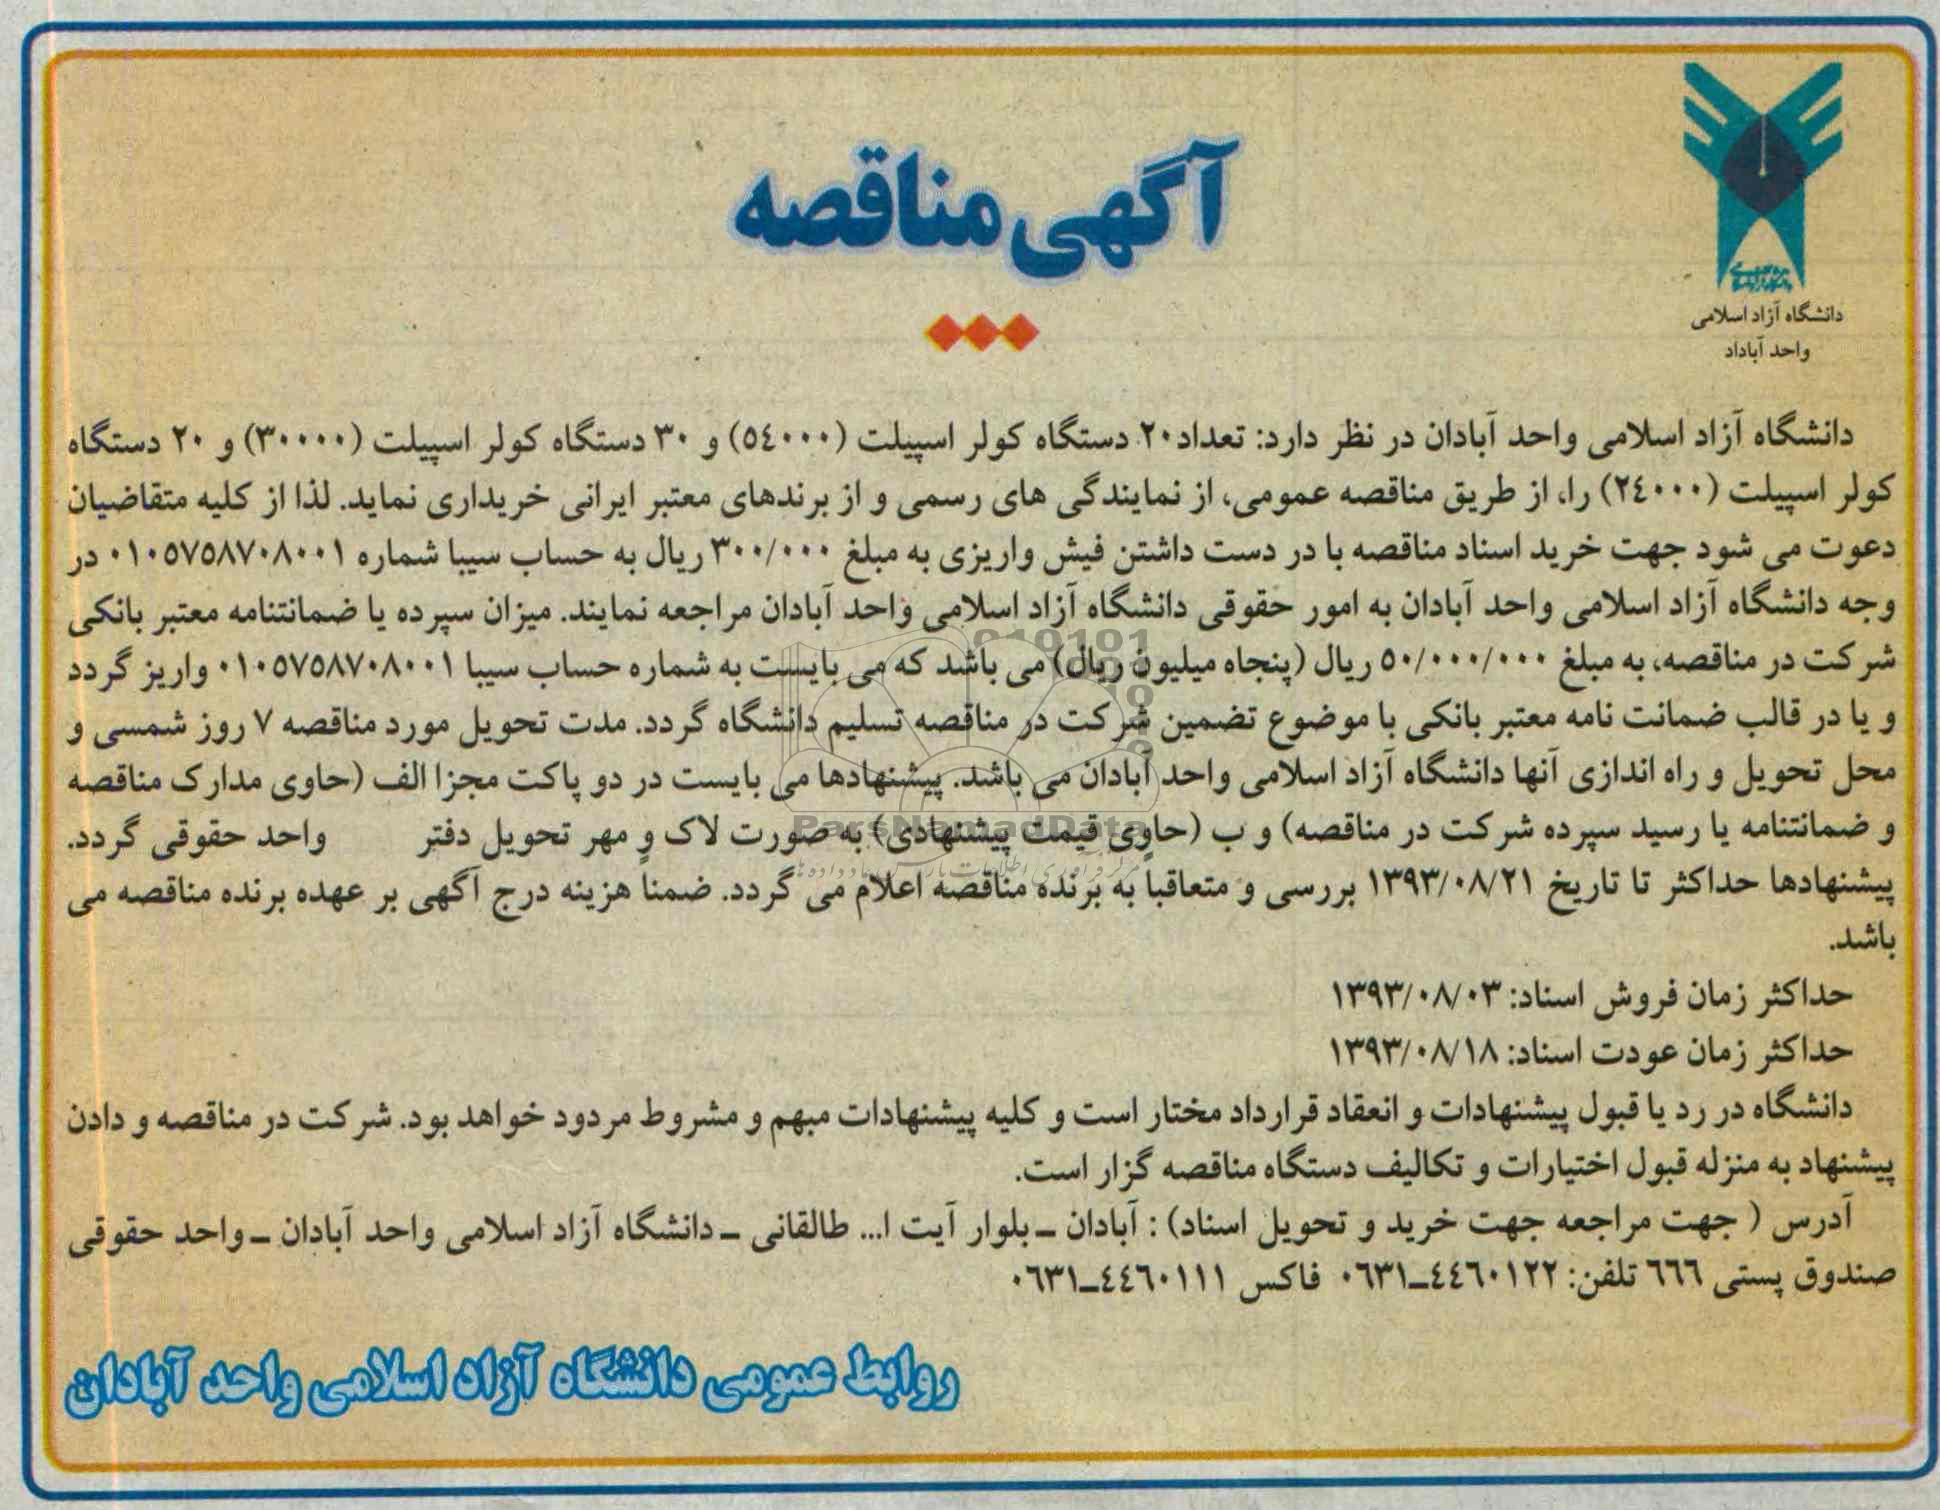 آگهی مناقصه
دانشگاه آزاد اسلامی
واحد آباداد
دانشگاه آزاد اسلامی واحد آبادان در نظر دارد: تعداد۲۰ دستگاه کولر اسپیلت (۵٤۰۰۰) و ۳۰ دستگاه کولر اسپیلت (۳۰۰۰۰) و ۲۰ دستگاه
کولر اسپیلت (۲٤۰۰۰) را، از طریق مناقصه عمومی، از نمایندگی های رسمی و از برندهای معتبر ایرانی خریداری نماید. لذا از کلیه متقاضیان
دعوت می شود جهت خرید اسناد مناقصه با در دست داشتن فیش واریزی به مبلغ ۳۰۰/۰۰۰ ریال به حساب سیبا شماره ۰۱۰۵۷۵۸۷۰۸۰۰۱ در
وجه دانشگاه آزاد اسلامی واحد آبادان به امور حقوقی دانشگاه آزاد اسلامی واحد آبادان مراجعه نمایند. میزان سپرده یا ضمانتنامه معتبر بانکی
شرکت در مناقصه، به مبلغ ۵۰/۰۰۰/۰۰۰ ریال (پنجاه میلیون ریال) می باشد که می بایست به شماره حساب سیبا ۰۱۰۵۷۵۸۷۰۸۰۰۱ واریز گردد
و یا در قالب ضمانت نامه معتبر بانکی با موضوع تضمین شرکت در مناقصه تسلیم دانشگاه گردد. مدت تحویل مورد مناقصه ۷ روز شمسی و
محل تحویل و راه اندازی آنها دانشگاه آزاد اسلامی واحد آبادان می باشد. پیشنهادها می بایست در دو پاکت مجزا الف (حاوی مدارک مناقصه
و ضمانتنامه یا رسید سپرده شرکت در مناقصه) و ب (حاوی قیمت پیشنهادی) به صورت لاک و مهر تحویل دفتر واحد حقوقی گردد.
پیشنهادها حداکثر تا تاریخ ۱۳۹۳/۰۸/۲۱ بررسی و متعاقباً به برنده مناقصه اعلام می گردد. ضمناً هزینه درج آگهی بر عهده برنده مناقصه می
باشد.
حداکثر زمان فروش اسناد: ۱۳۹۳/۰۸/۰۳
حداکثر زمان عودت اسناد: ۱۳۹۳/۰۸/۱۸
دانشگاه در رد یا قبول پیشنهادات و انعقاد قرارداد مختار است و کلیه پیشنهادات مبهم و مشروط مردود خواهد بود. شرکت در مناقصه و دادن
پیشنهاد به منزله قبول اختیارات و تکالیف دستگاه مناقصه گزار است.
آدرس ( جهت مراجعه جهت خرید و تحویل اسناد) : آبادان ـ بلوار آیت ا... طالقانی ـ دانشگاه آزاد اسلامی واحد آبادان ـ واحد حقوقی
صندوق پستی ٦٦٦ تلفن: ٤٤٦۰۱۲۲ـ۰٦۳۱ فاکس ٤٤٦۰۱۱۱ـ۰٦۳۱
روابط عمومی دانشگاه آزاد اسلامی واحد آبادان
ParsNamadData